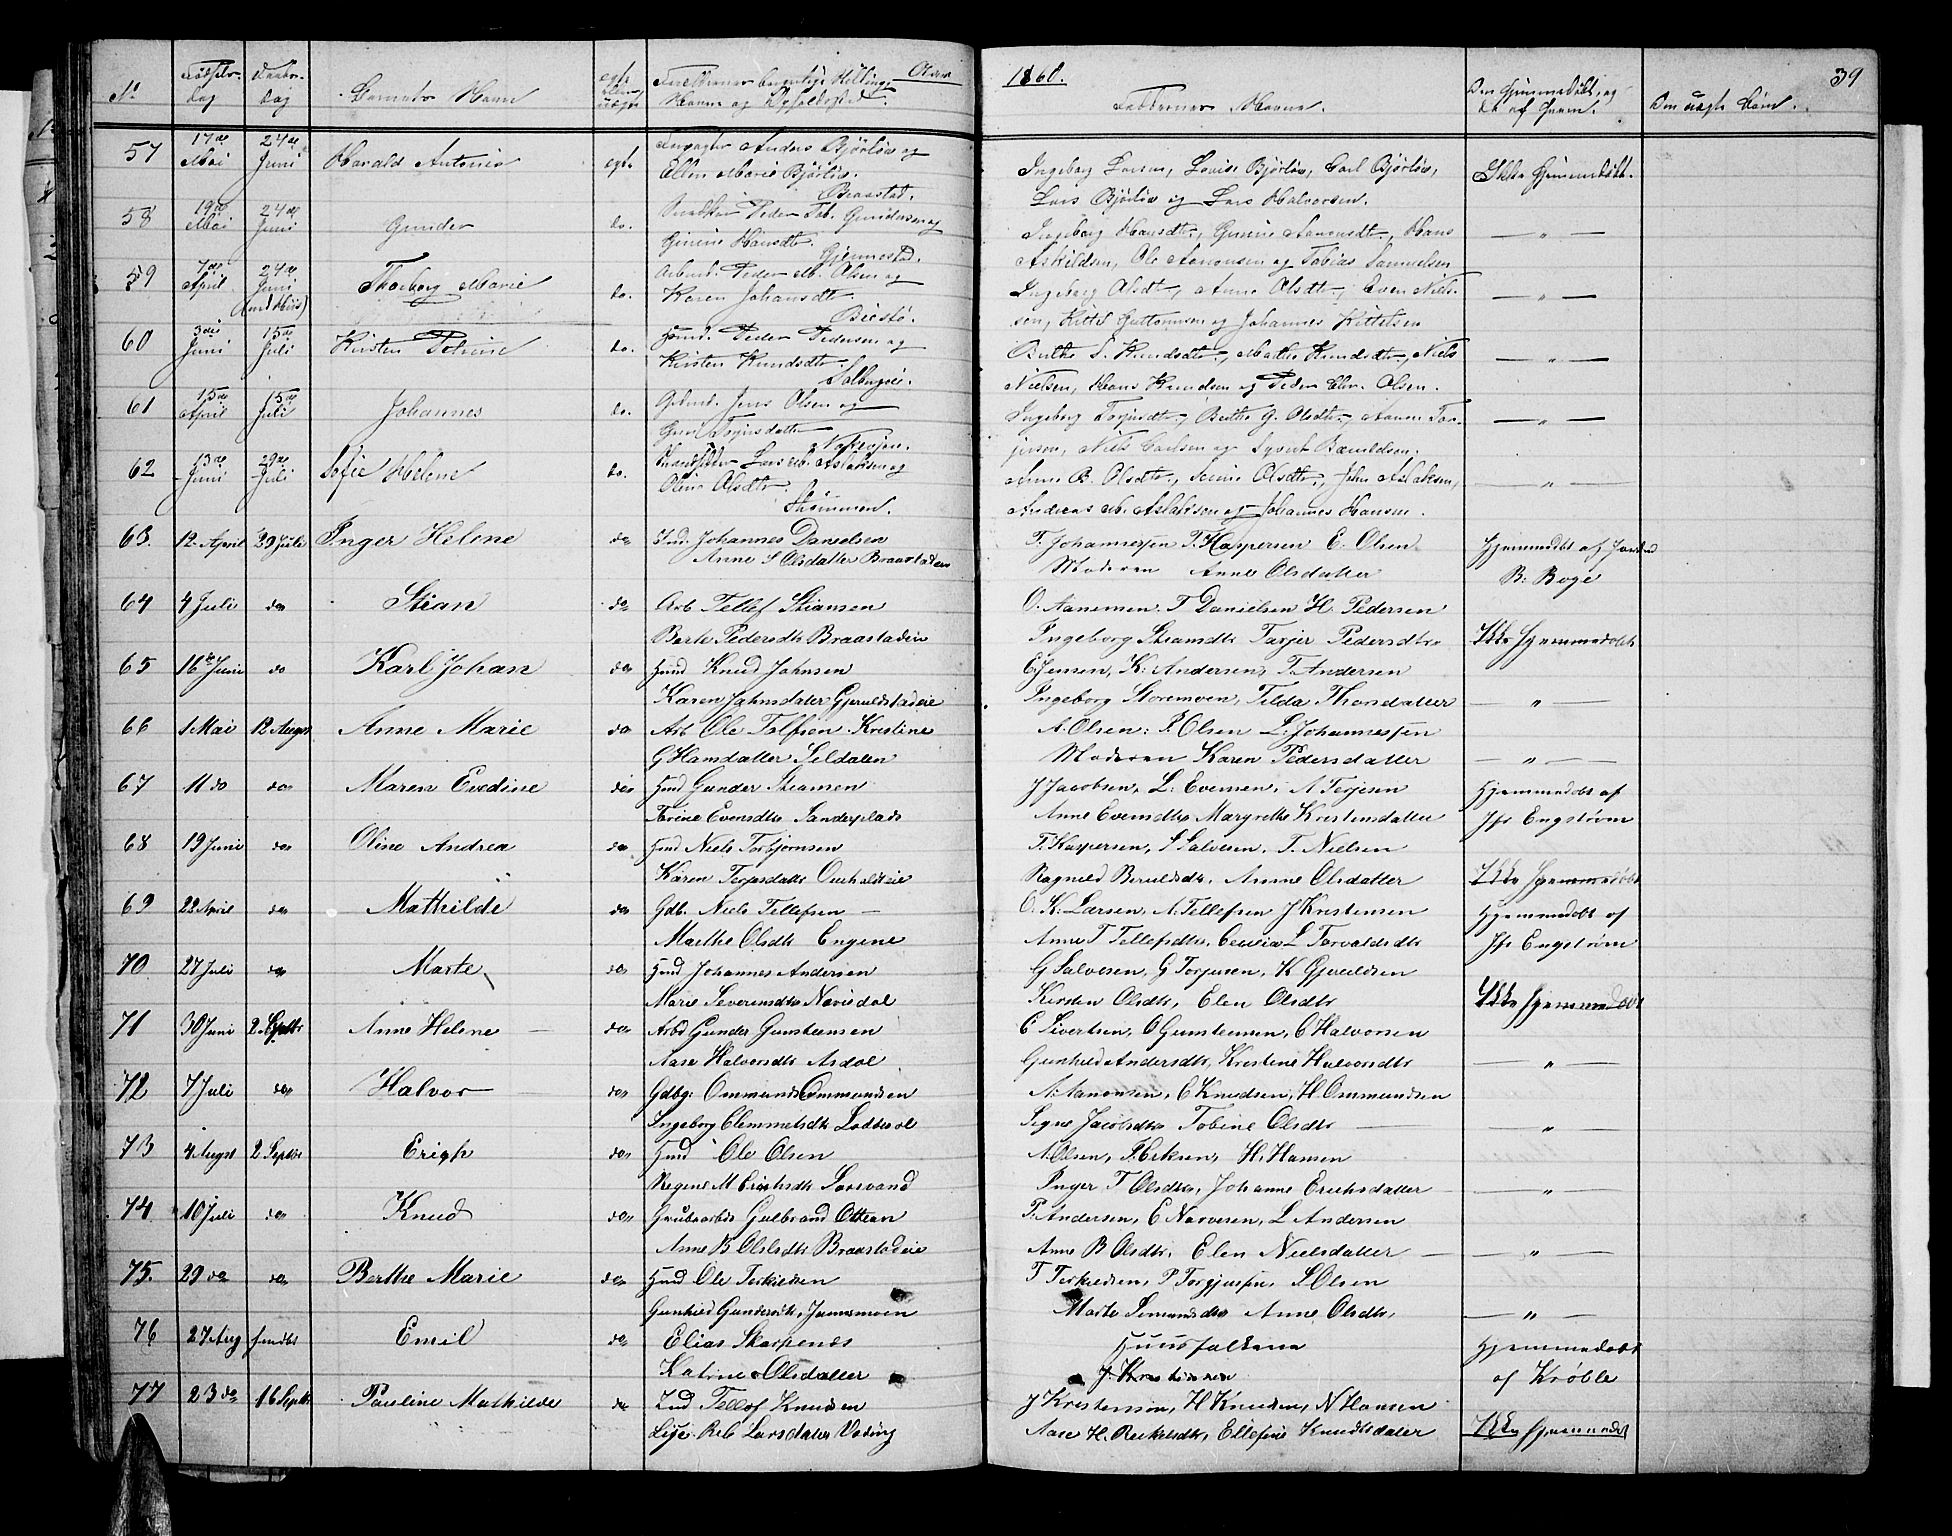 1860. 39
No Fødsels- Dag Daabs- Dag Barnets Navn egte eller uægte Forældrenes Navne og
Faddernes Navne. Om Hjemmedøbt, og da af hvem. Om uægte Børn.
57 17de Mai 24de Juni Harald Antonio egte Anders Bjørløv og
Ellen Marie Bjørløv. Braastad.
Ingeborg Larsen, Lovise Bjørløv, Carl Bjørløv, Ikke Hjemmedøbt.
Lars Bjørløv og Lars Halvorsen.
58 19de Mai 24de Juni Gunder do. Peder Gundersen og
Hansdt. Gjennestad.
Ingeborg Hansdt., Gunine Aanonsdt., Hans — " —
Askildsen, Ole Aanonsen og Tobias Samuelsen
59 7de April 24de Juni Thorborg Marie do. Arbmd. Peder M. Olsen og
Karen Johansdt. Biestø.
Ingeborg Olsdt., Anne Olsdt., Even Niel- — " —
sen, Kittil Guttormsen og Johannes Kittelsen
60 3die Juni 15de Juli Kirsten Petrine do. Hmd. Peder Pedersen og
Kirsten Knudsdt.
Berthe S. Knudsdt., Marthe Knudsdt., Niels — " —
Nielsen, Hans Knudsen og Peder Chr. Olsen.
61 15de April 15de Juli Johannes do. Gdmd. Jens Olsen og
Torjusdatter
Ingeborg Torjusdt., Berthe G. Olsdt., Aanon Tor- — " —
jusen, Niels Carlsen og Syvert
62 13de Juni 29de Juli Sofie Helene do. Lars M. Aslaksen og
Oline Olsdt. Strømmen.
Anne B. Olsdt., Olsdt., John Aslaksen, — " —
Andreas M. Aslaksen og Johannes Hansen.
63. 12 April 29 Juli Inger Helene do Ind. Johannes Danielsen
Anne S Olsdatter Braastadeie
T. Johannesen T. Kaspersen E. Olsen Hjemmedøbt af
Moderen Anne Olsdatter B. Boge
64 4 Juli do Stian do Arb Tellef Stiansen
Berte Pedersdtr Braastadeie
O. Aanensen. T Danielsen H. Pedersen
Ingeborg Stiansdtr Torjer Pedersdtr Ikke Hjemmedøbt
65 16de Juni do Karl Johan do Hmd Knud Johnsen
Karen Jahnsdater Gjeruldstadeie
C Jensen, K. Andersen, T. Andersen
Ingeborg Storemoen, Tilda Thorsdatter — " —
66 1 Mai 12 August Anne Marie do Arb Ole Kristine
G Hansdatter Seldalen
A. Olsen. P. Olsen L. Johannessen
Moderen Karen Pedersdatter — " —
67 11 do do Maren Evedine do Hmd Gunder Stiansen
Torine Evensdtr Sanderplads
J Jacobsen, L. Evensen. A Terjesen Hjemmedøbt af
Anne Evensdtr Margrethe Kristensdatter Jfr Engstrøm
68 19 Juni do Oline Andrea do Hmd Niels Torbjørnsen
Karen Terjesdatter
T. Kaspersen, S Salvesen. T. Nielsen
Ragnild Beruldsdtr. Anne Olsdatter Ikke Hjemmedøbt
69 22 April do Mathilde do Gdb. Niels Tellefsen —
Marthe Olsdtr Engene
O. K. Larsen, N. Tellefsen J Kristensen Hjemmedøbt af
Anne T Tellefsdtr, Cecilia L Torvaldsdtr Jfr Engstrøm
70 27 Juli do Marte do Hmd Johannes Andersen
Marie Severinsdtr Navisdal
G Salvesen, G Torjusen, K Gjeruldsen
Kirsten Olsdtr, Elen Olsdtr Ikke Hjemmedøbt
71 30 Juni 2 Septbr Anne Helene — do Arbd Gunder Gunstensen
Aase Halvorsdtr Asdal
C Sivertsen, O Gunstensen, C Halvorsen
Gunhild Andersdtr, Kristine Halvorsdtr — " —
72 7 Juli do Halvor do Gdbg. Ommund Ommundsen
Ingeborg Clemmetsdtr
A. Aanonsen, C Knudsen, H. Ommundsen
Signe Jacobsdtr Tobine Olsdtr — " —
73 4 Augst 2 Septbr Erich do Hmd Ole Olsen
Regine M Erichsdtr Sorsvand
A. Olsen, T. Eriksen, H. Hansen
Inger T Olsdtr, Johanne Erichsdatter — " —
74 10 Juli do Knud do Grubearbd Gulbrand Ottesen
Anne B Olsdtr Braastadeie
T. Andersen, E Narvesen, L Andersen
Anne B Olsdtr. Elen Nielsdatter — " —
75. 29 do do Berthe Marie do Hmd Ole Terkildsen
Gunhild Gundersdtr,
T Terkildsen, P Torgjusen, S Olsen
Marte Simonsdtr Anne Olsdtr, — " —
76 27 Aug Emil do Elias Skarpenes
Katrine Olsdatter
Huusfolkene Hjemmedøbt
J Kristensen af Krøble
77 23 do 16 Septbr Pauline Mathilde do Ind Tellef Knudsen
Lise Reb Larsdater
J Kristensen, H Knudsen, N Hansen
Aase H. Reiersdtr, Ellefine Knudtsdater Ikke Hjemmedøbt